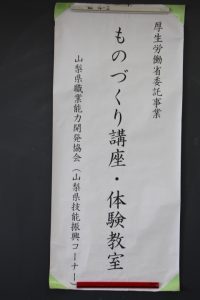 厚生労働省委託事業
ものづくり講座・体験教室
山梨県職業能力開発協会（山梨県技能振興コーナー）